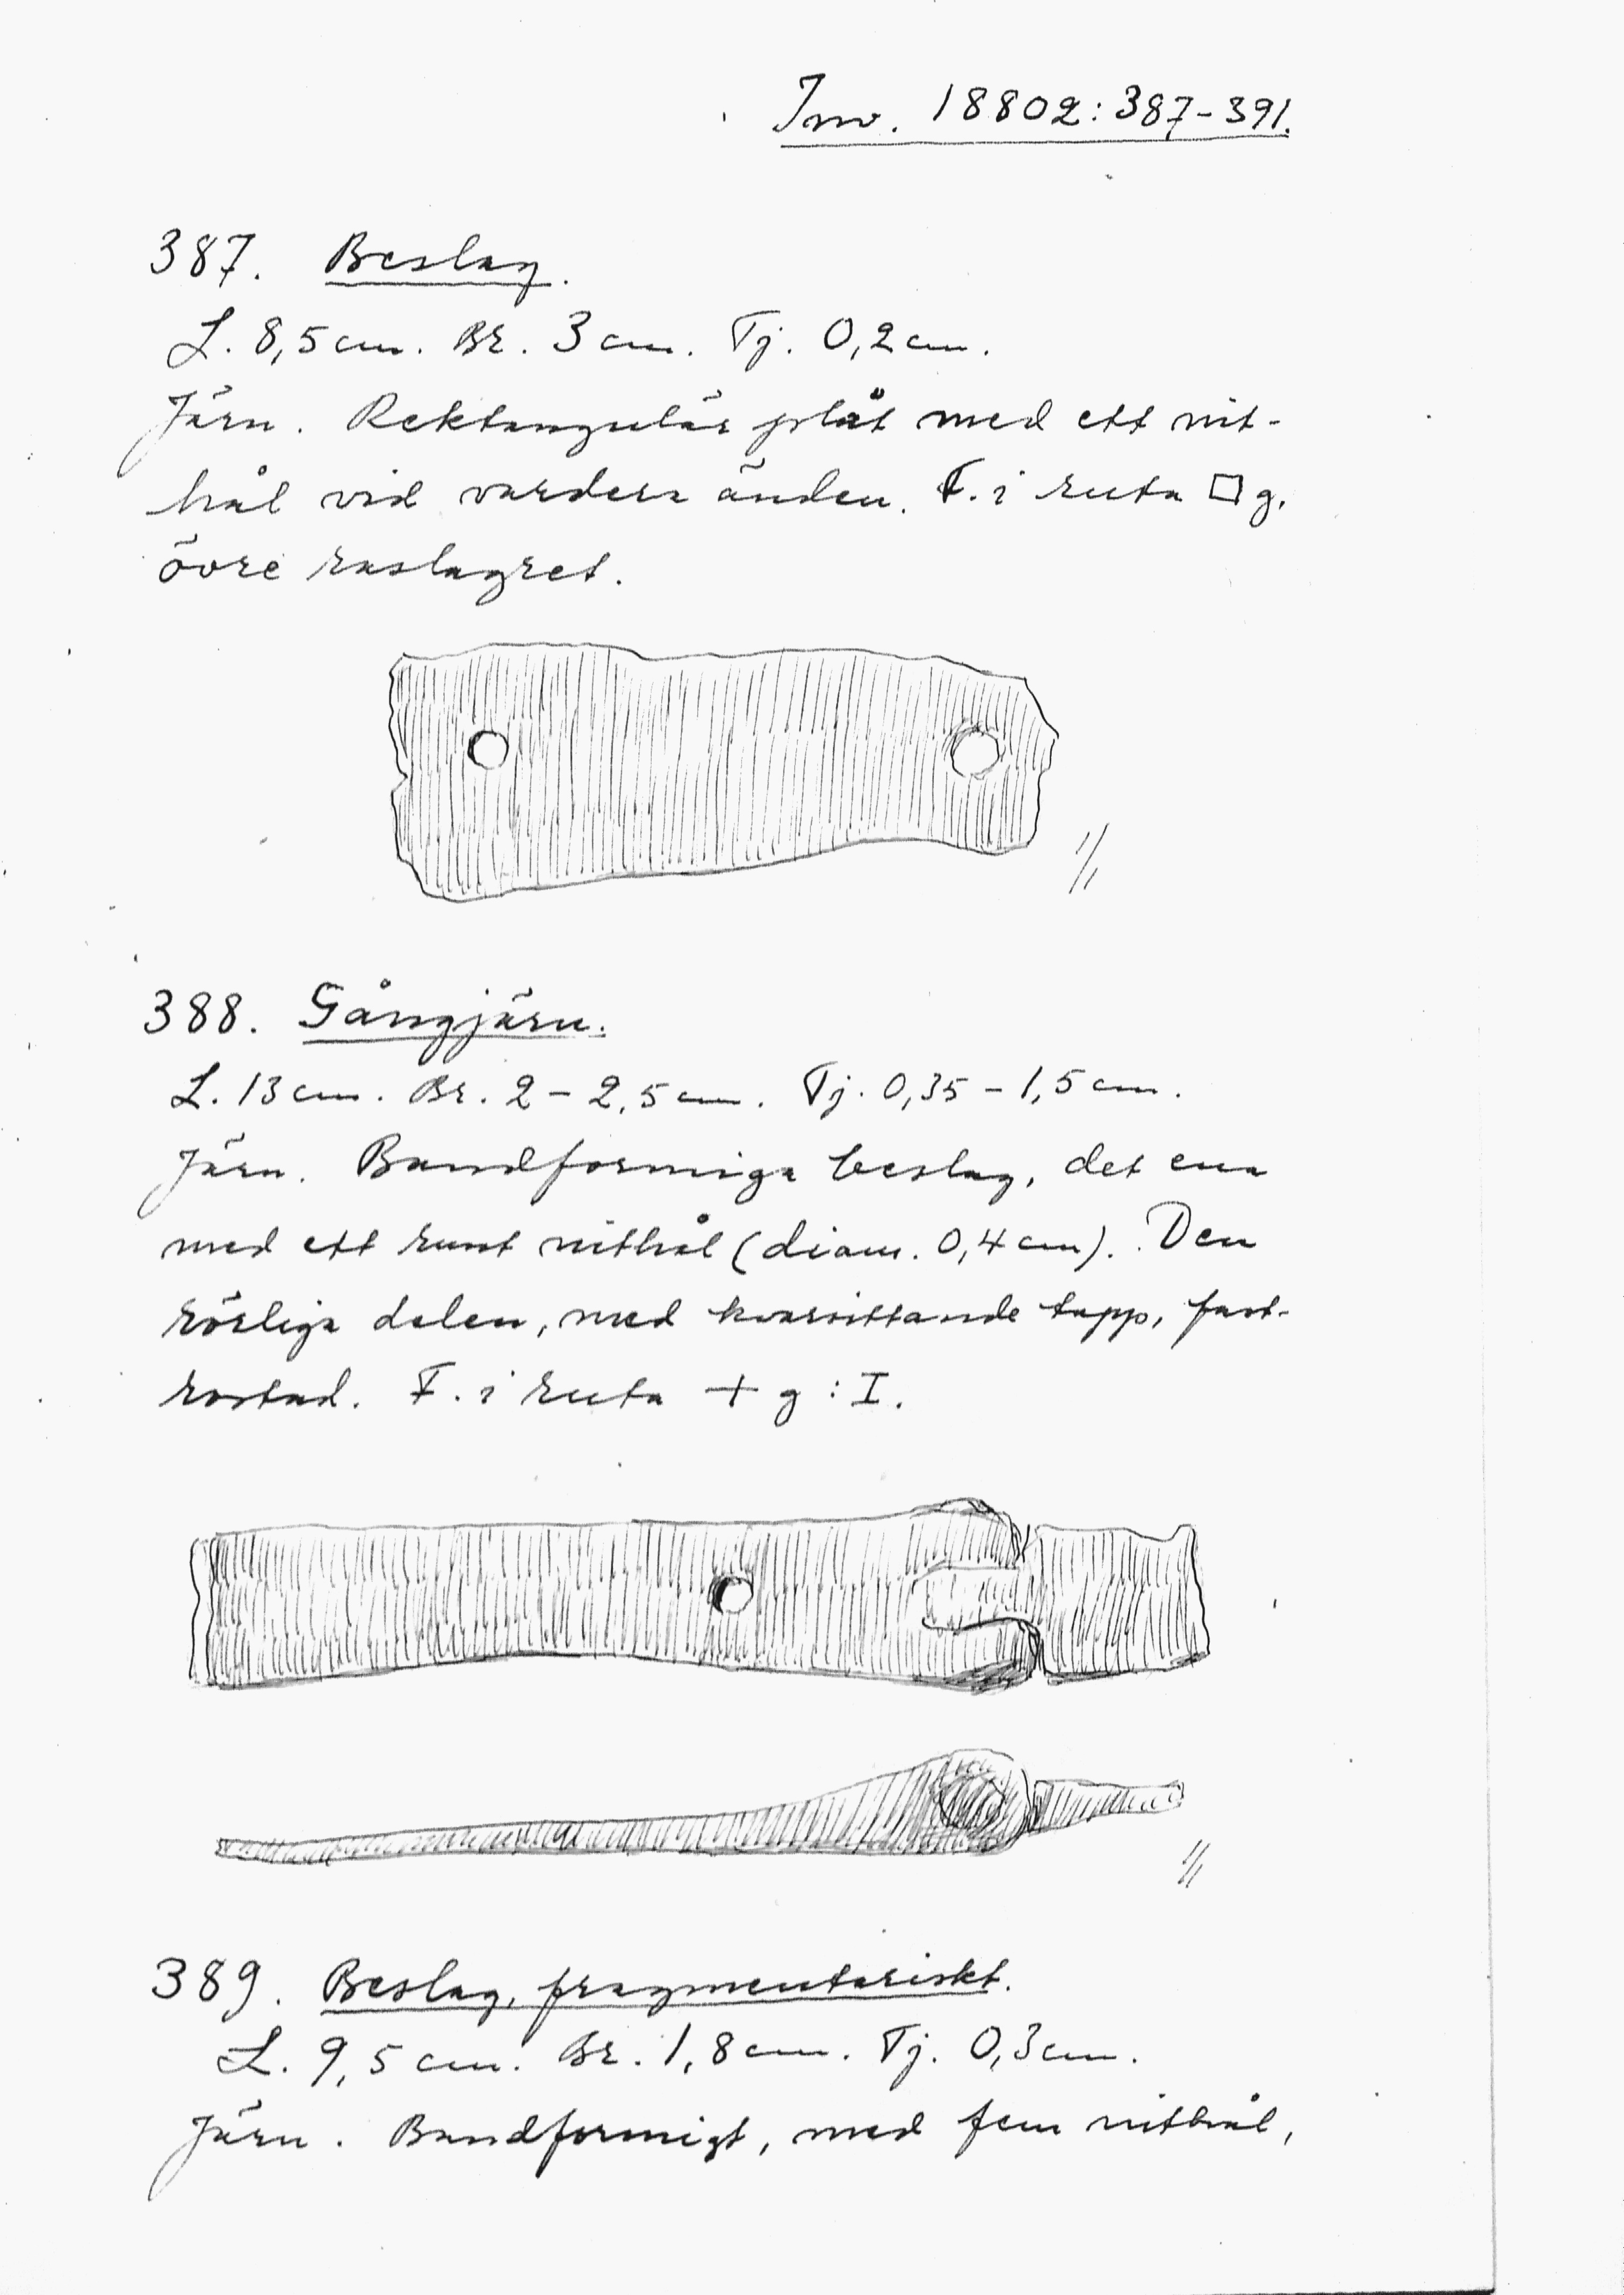 Inv. 18802:387-391.
387. Beslag.
L. 8,5 cm. Br. 3 cm. Tj. 0,2 cm.
Järn. Rektangulär plåt med ett nit-
hål vid vardera änden. F. i ruta □ g,
övre raslagret.
1/1
388. Gångjärn.
L. 13 cm. Br. 2 – 2,5 cm. Tj. 0,35 – 1,5 cm.
Järn. Bandformiga beslag, det ena
med ett runt nithål (diam. 0,4 cm). Den
rörliga delen, med kvarsittande tapp, fast-
rostad. F. i ruta + g : I.
1/1
389. Beslag, fragmentariskt.
L. 9,5 cm. Br. 1,8 cm. Tj. 0,3 cm.
Järn. Bandformigt, med fem nithål,